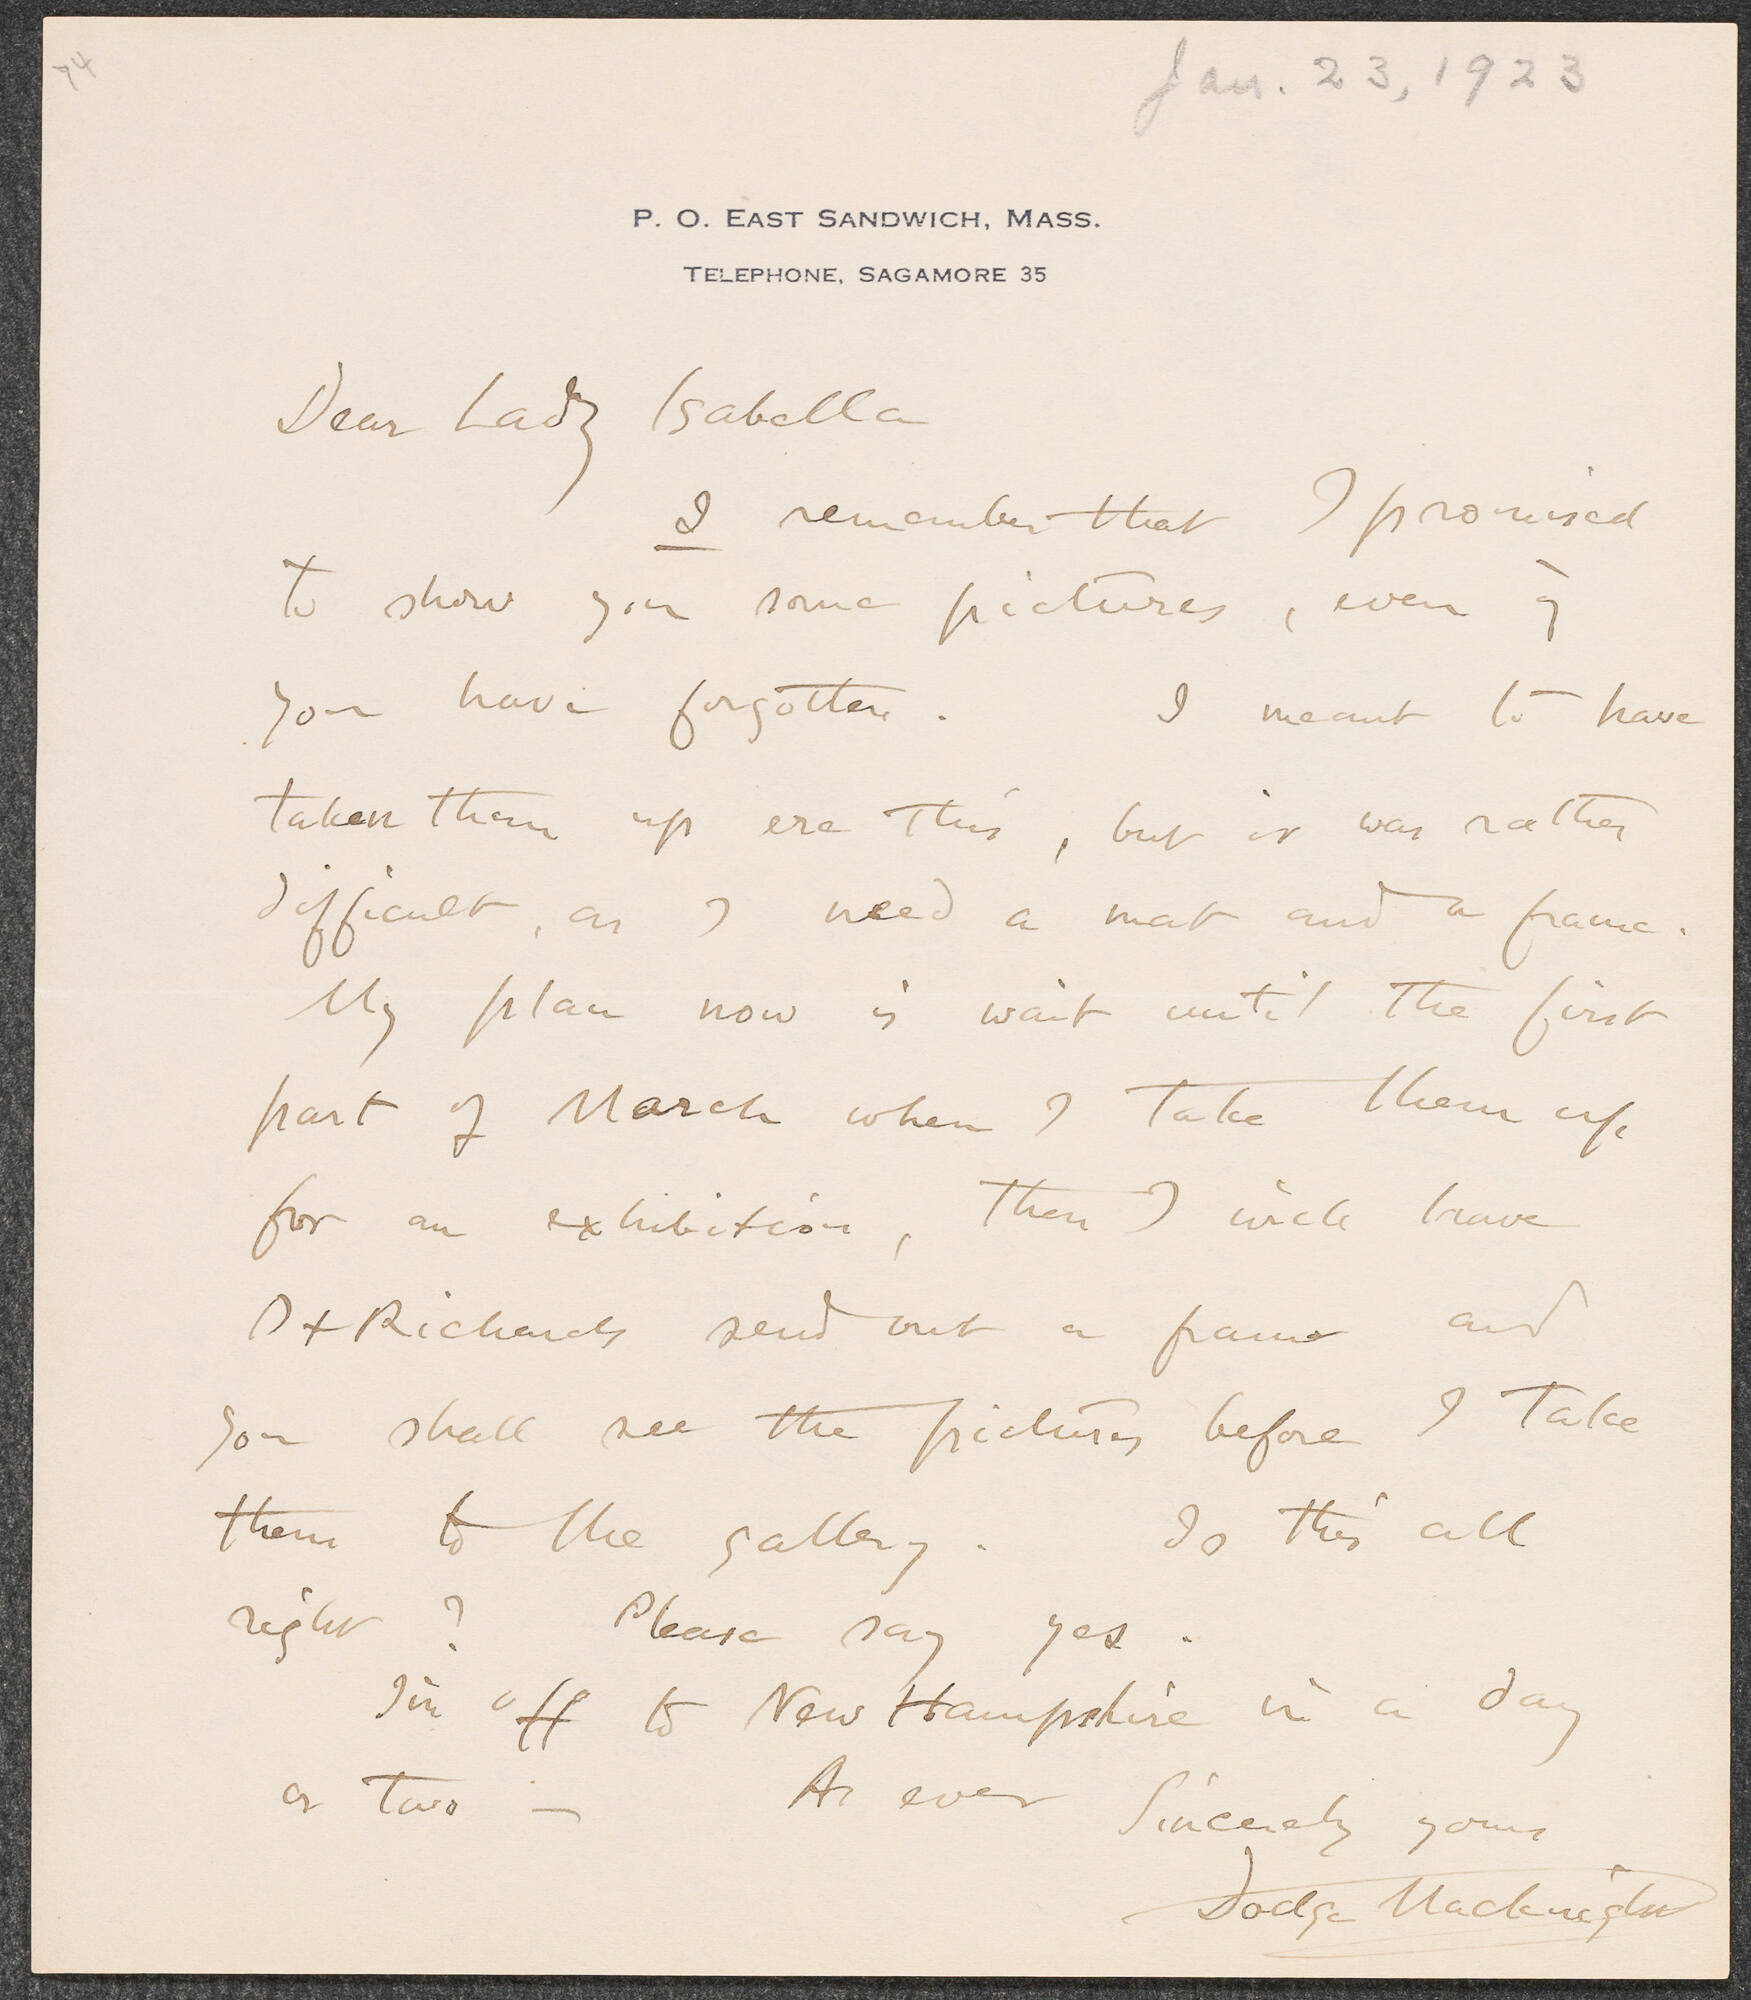 74
Jan. 23, 1923
P. O. EAST SANDWICH, MASS.
TELEPHONE, SAGAMORE 35
Dear Lady Isabella
I remember that I promised
to show you some pictures, even if
you have forgotten. I meant to have
taken them up ere this, but it was rather
difficult, as I need a mat and a frame.
My plan now is wait until the first
part of March when I take them up
for an exhibition, then I will have
D + Richards send out a frame and
you shall see the pictures before I take
them to the gallery. Is this all
right? Please say yes.
I'm off to New Hampshire in a day
or two — As ever Sincerely yours
Dodge Macknight